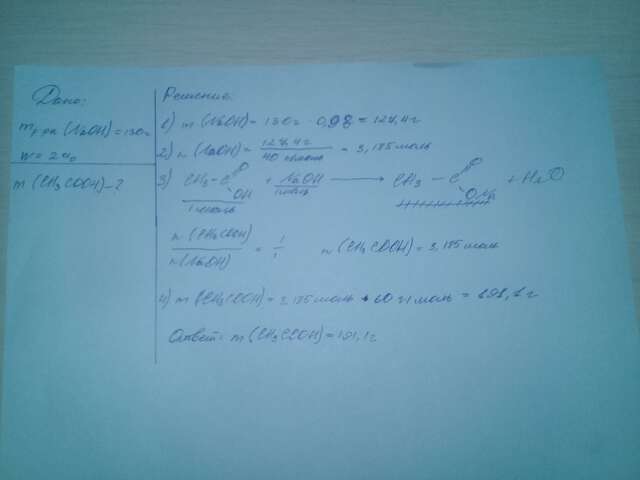 Дано:
m р-ра (NaOH) = 130г
w = 2%
m (CH₃COOH) - ?
Решение:
1) m (NaOH) = 130г · 0,98 = 127,4г
2) n (NaOH) = 127,4г / 40 г/моль = 3,185 моль
3) CH₃ - C O OH + NaOH → CH₃ - C O ONa + H₂O
1 моль 1 моль
n (CH₃COOH) / n (NaOH) = 1/1 n (CH₃COOH) = 3,185 моль
4) m (CH₃COOH) = 3,185 моль · 60 г/моль = 191,1 г
Ответ: m (CH₃COOH) = 191,1г